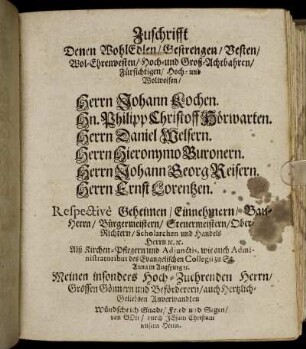 Zuschrifft
Denen WohlEdlen/ Gestrengen/ Vesten/
Wol-Ehrenvesten/ Hoch- und Groß-Achtbahren/
Fürsichtigen/ Hoch- und
Wolweisen/
Herrn Johann Kochen.
Hn. Philipp Christoff Hörwarten.
Herrn Daniel Welsern.
Herrn Hieronymo Buronern.
Herrn Johann Georg Reisern.
Herrn Ernst Lorentzen.
Respectivè Geheimen/ Einnehmern/ Bau-
Herrn/ Bürgermeistern/ Steuermeistern/ Ober-
Richtern/ Scholarchen und Handels
Herrn &c. &c.
Alß Kirchen-Pflegern und Adjunctis, wie auch Admi-
nistratoribus des Evangelischen Collegii zu St.
Anna in Augspurg &c.
Meinen insonders Hoch-Zuehrenden Herrn/
Grossen Gönnern und Beförderern/ auch Hertzlich-
Geliebten Anverwandten
Wündsche ich Gnade/ Fried und Segen/
von GOtt/ durch JEsum Christum
unsern Herrn.